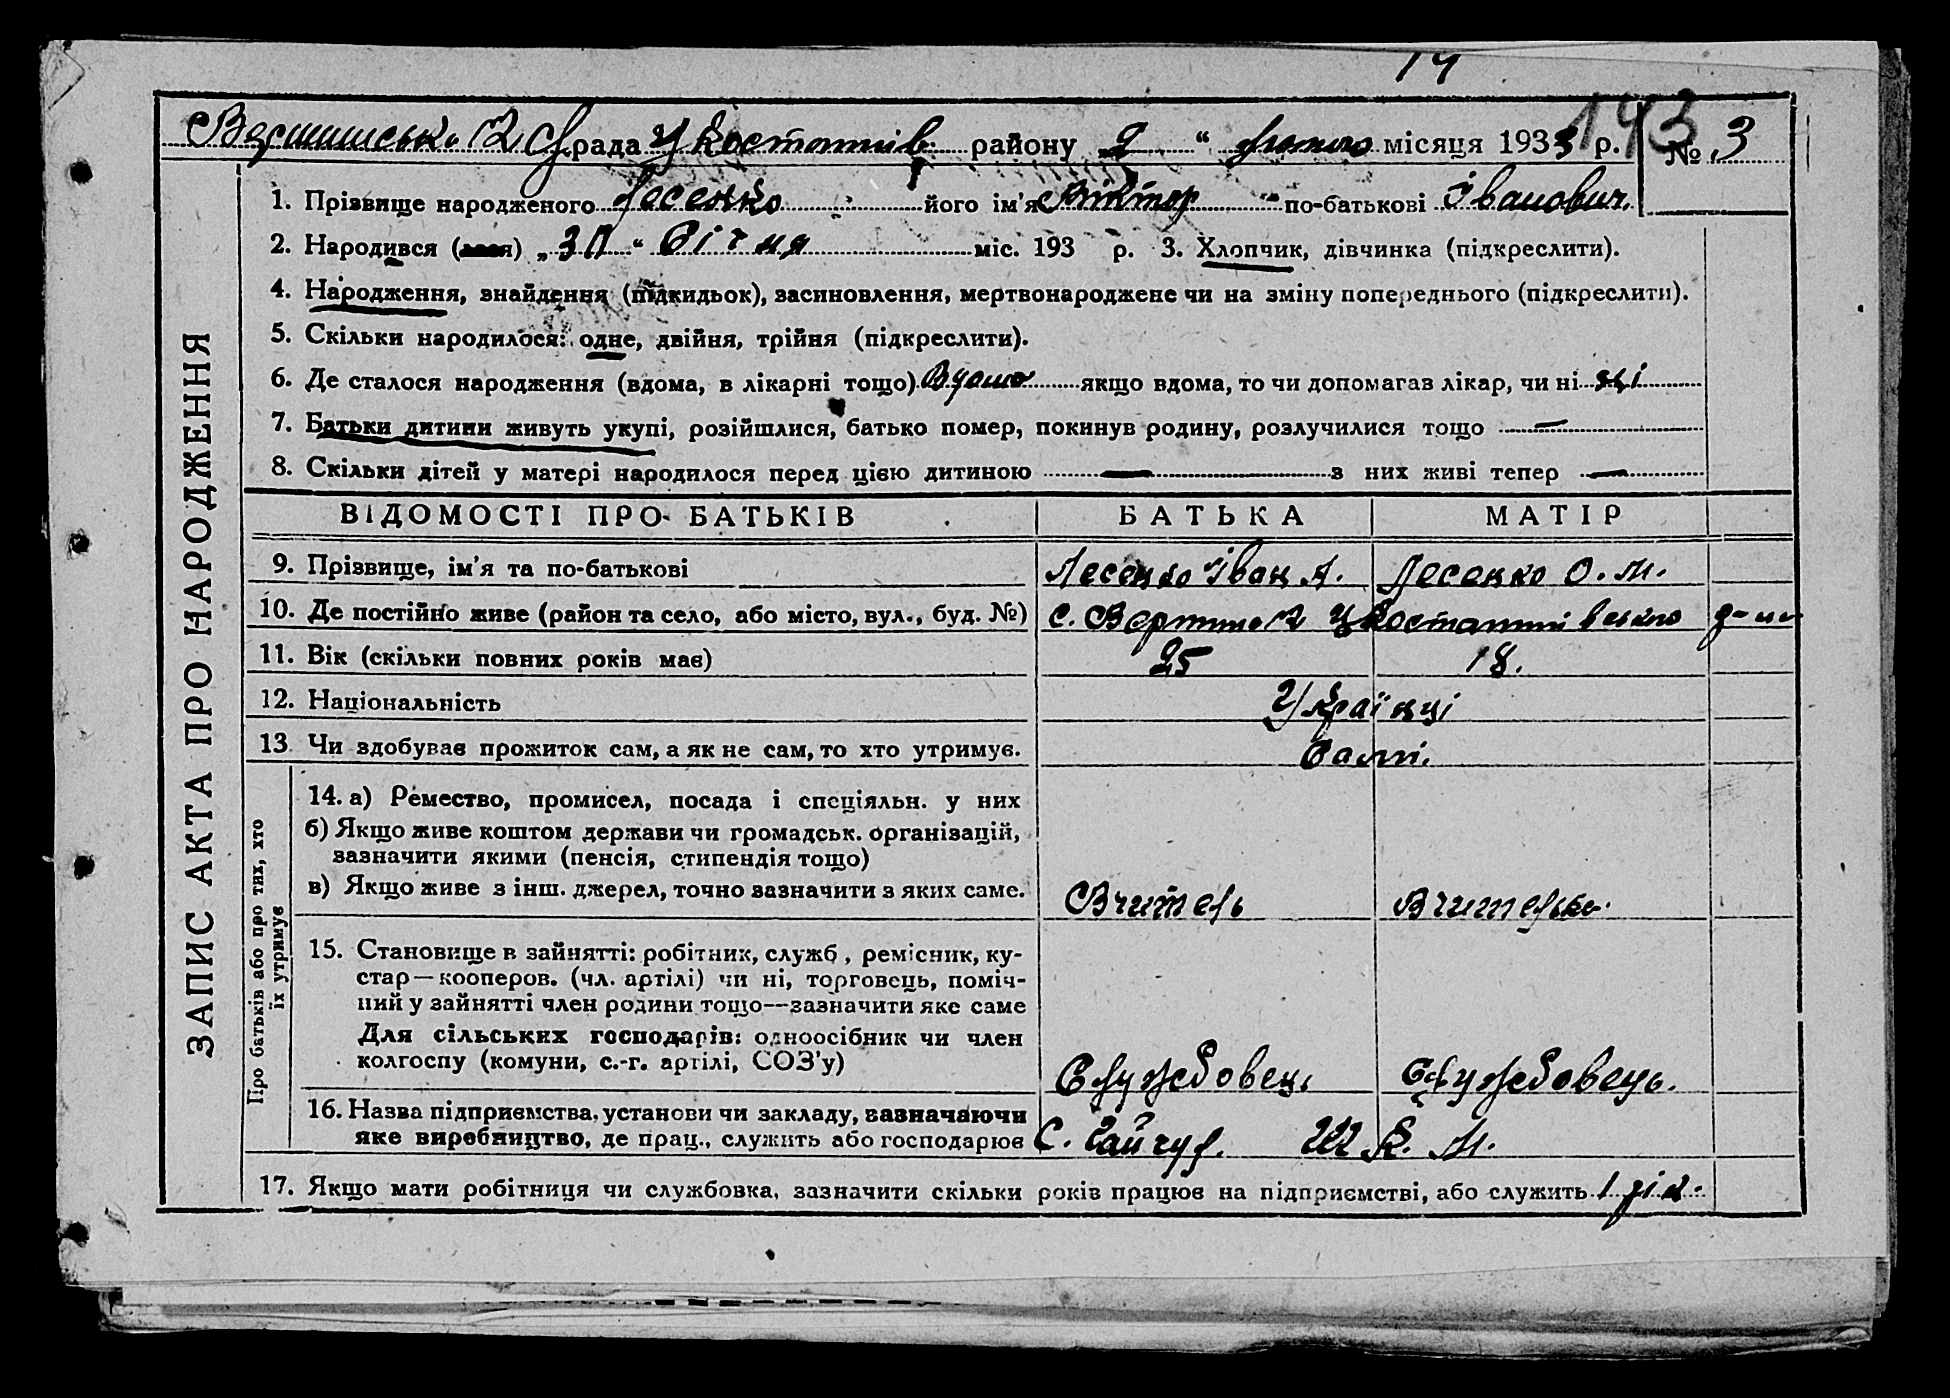 14
143
рада районy „ 2 “ лютого місяця 1933 р. № 3
1. Прізвище народженого Лесенко його ім'я Віктор по-батькові Іванович.
2. Народився (ася) „ 30 “ Січня міс. 193 р. 3. Хлопчик, дівчинка (підкреслити).
4. Народження, знайдення (підкидьок), засиновлення, мертвонароджене чи на зміну попереднього (підкреслити).
5. Скільки народилося: одне, двійня, трійня (підкреслити).
6. Де сталося народження (вдома, в лікарні тощо) Вдома якщо вдома, то чи допомагав лікар, чи ні ні
7. Батьки дитини живуть укупі, розійшлися, батько помер, покинув родину, розлучилися тощо —
8. Скільки дітей у матері народилося перед цією дитиною — з них живі тепер —
ЗАПИС АКТА ПРО НАРОДЖЕННЯ
ВІДОМОСТІ ПРО БАТЬКІВ БАТЬКА МАТІР
9. Прізвище, ім'я та по-батькові Лесенко Іван А. Лесенко О. М.
10. Де постійно живе (район та село, або місто, вул., буд. №) с.
11. Вік (скільки повних років має) 25 18.
12. Національність Українці
13. Чи здобуває прожиток сам, а як не сам, то хто утримує. Самі.
Про батьків або про тих, хто
їх утримує
14. а) Ремество, промисел, посада і спеціяльн. у них
б) Якщо живе коштом держави чи громадськ. організацій,
зазначити якими (пенсія, стипендія тощо)
в) Якщо живе з інш. джерел, точно зазначити з яких саме. Вчитель Вчителька.
15. Становище в зайнятті: робітник, служб., ремісник, ку-
стар—кооперов. (чл. артілі) чи ні, торговець, поміч-
ний у зайнятті член родини тощо—зазначити яке саме
Для сільських господарів: одноосібник чи член
колгоспу (комуни, с.-г. артілі, СОЗ'у) Службовець Службовець.
16. Назва підприємства, установи чи закладу, зазначаючи
яке виробництво, де прац., служить або господарює С. Гайчул. Ш. К. М.
17. Якщо мати робітниця чи службовка, зазначити скільки років працює на підприємстві, або служить 1 рік.